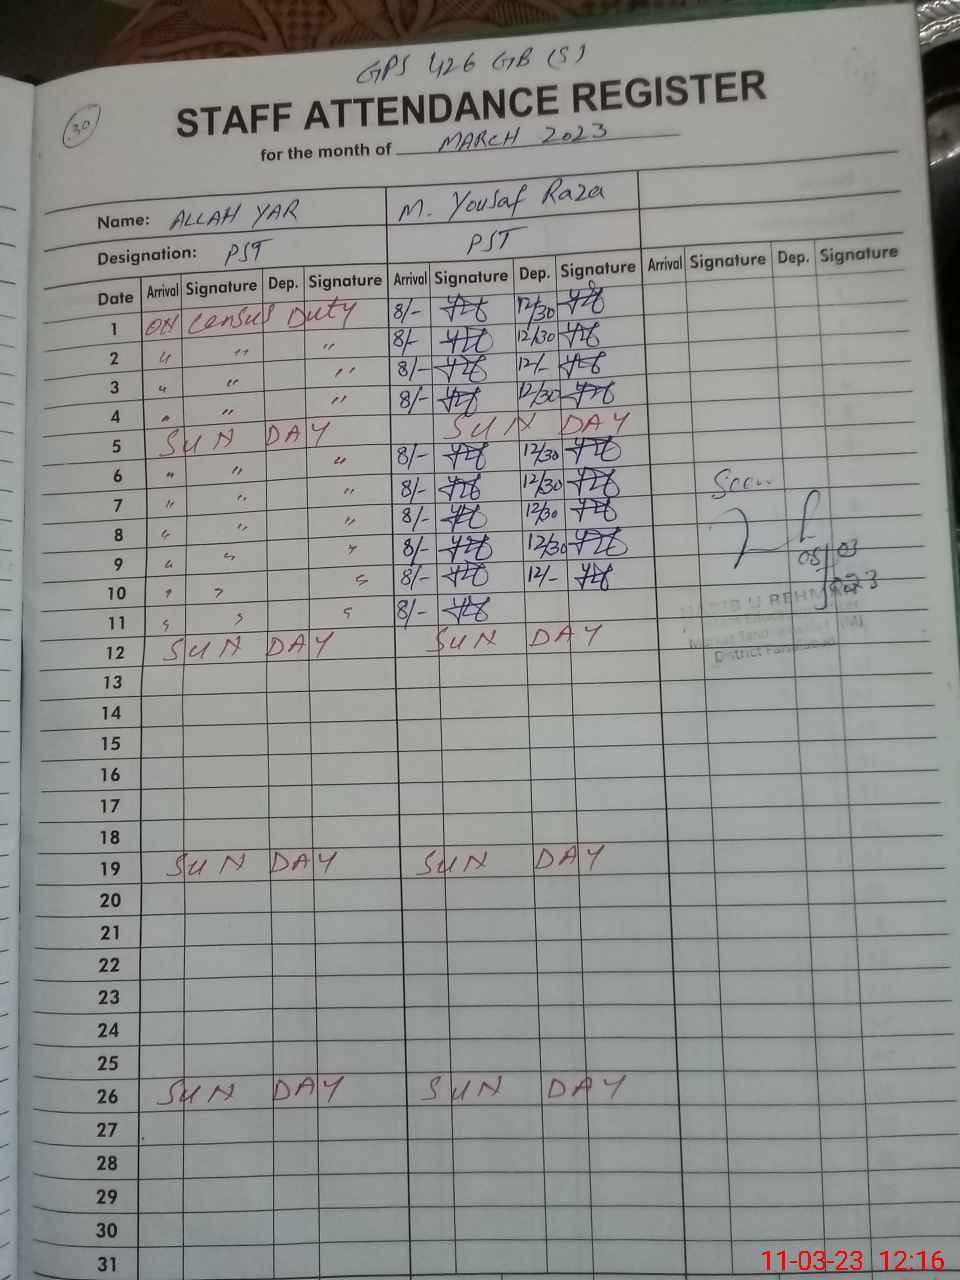 GPS 426 GB (S)
30
STAFF ATTENDANCE REGISTER
for the month of MARCH 2023
Name: ALLAH YAR M. Yousaf Raza
Designation: PST PST
Date Arrival Signature Dep. Signature Arrival Signature Dep. Signature Arrival Signature Dep. Signature
1 ON Census Duty 8/- 12/30
2 " " " 8/- 12/30
3 " " " 8/- 12/-
4 " " " 8/- 12/30
5 SUN DAY SUN DAY
6 " " " 8/- 12/30
7 " " " 8/- 12/30
Seen
8 " " " 8/- 12/30
9 " " " 8/- 12/30
08/03
10 " " " 8/- 12/-
2023
11 " " " 8/-
12 SUN DAY SUN DAY
U REHMAN
District
13
14
15
16
17
18
19 SUN DAY SUN DAY
20
21
22
23
24
25
26 SUN DAY SUN DAY
27
28
29
30
31
11-03-23 12:16